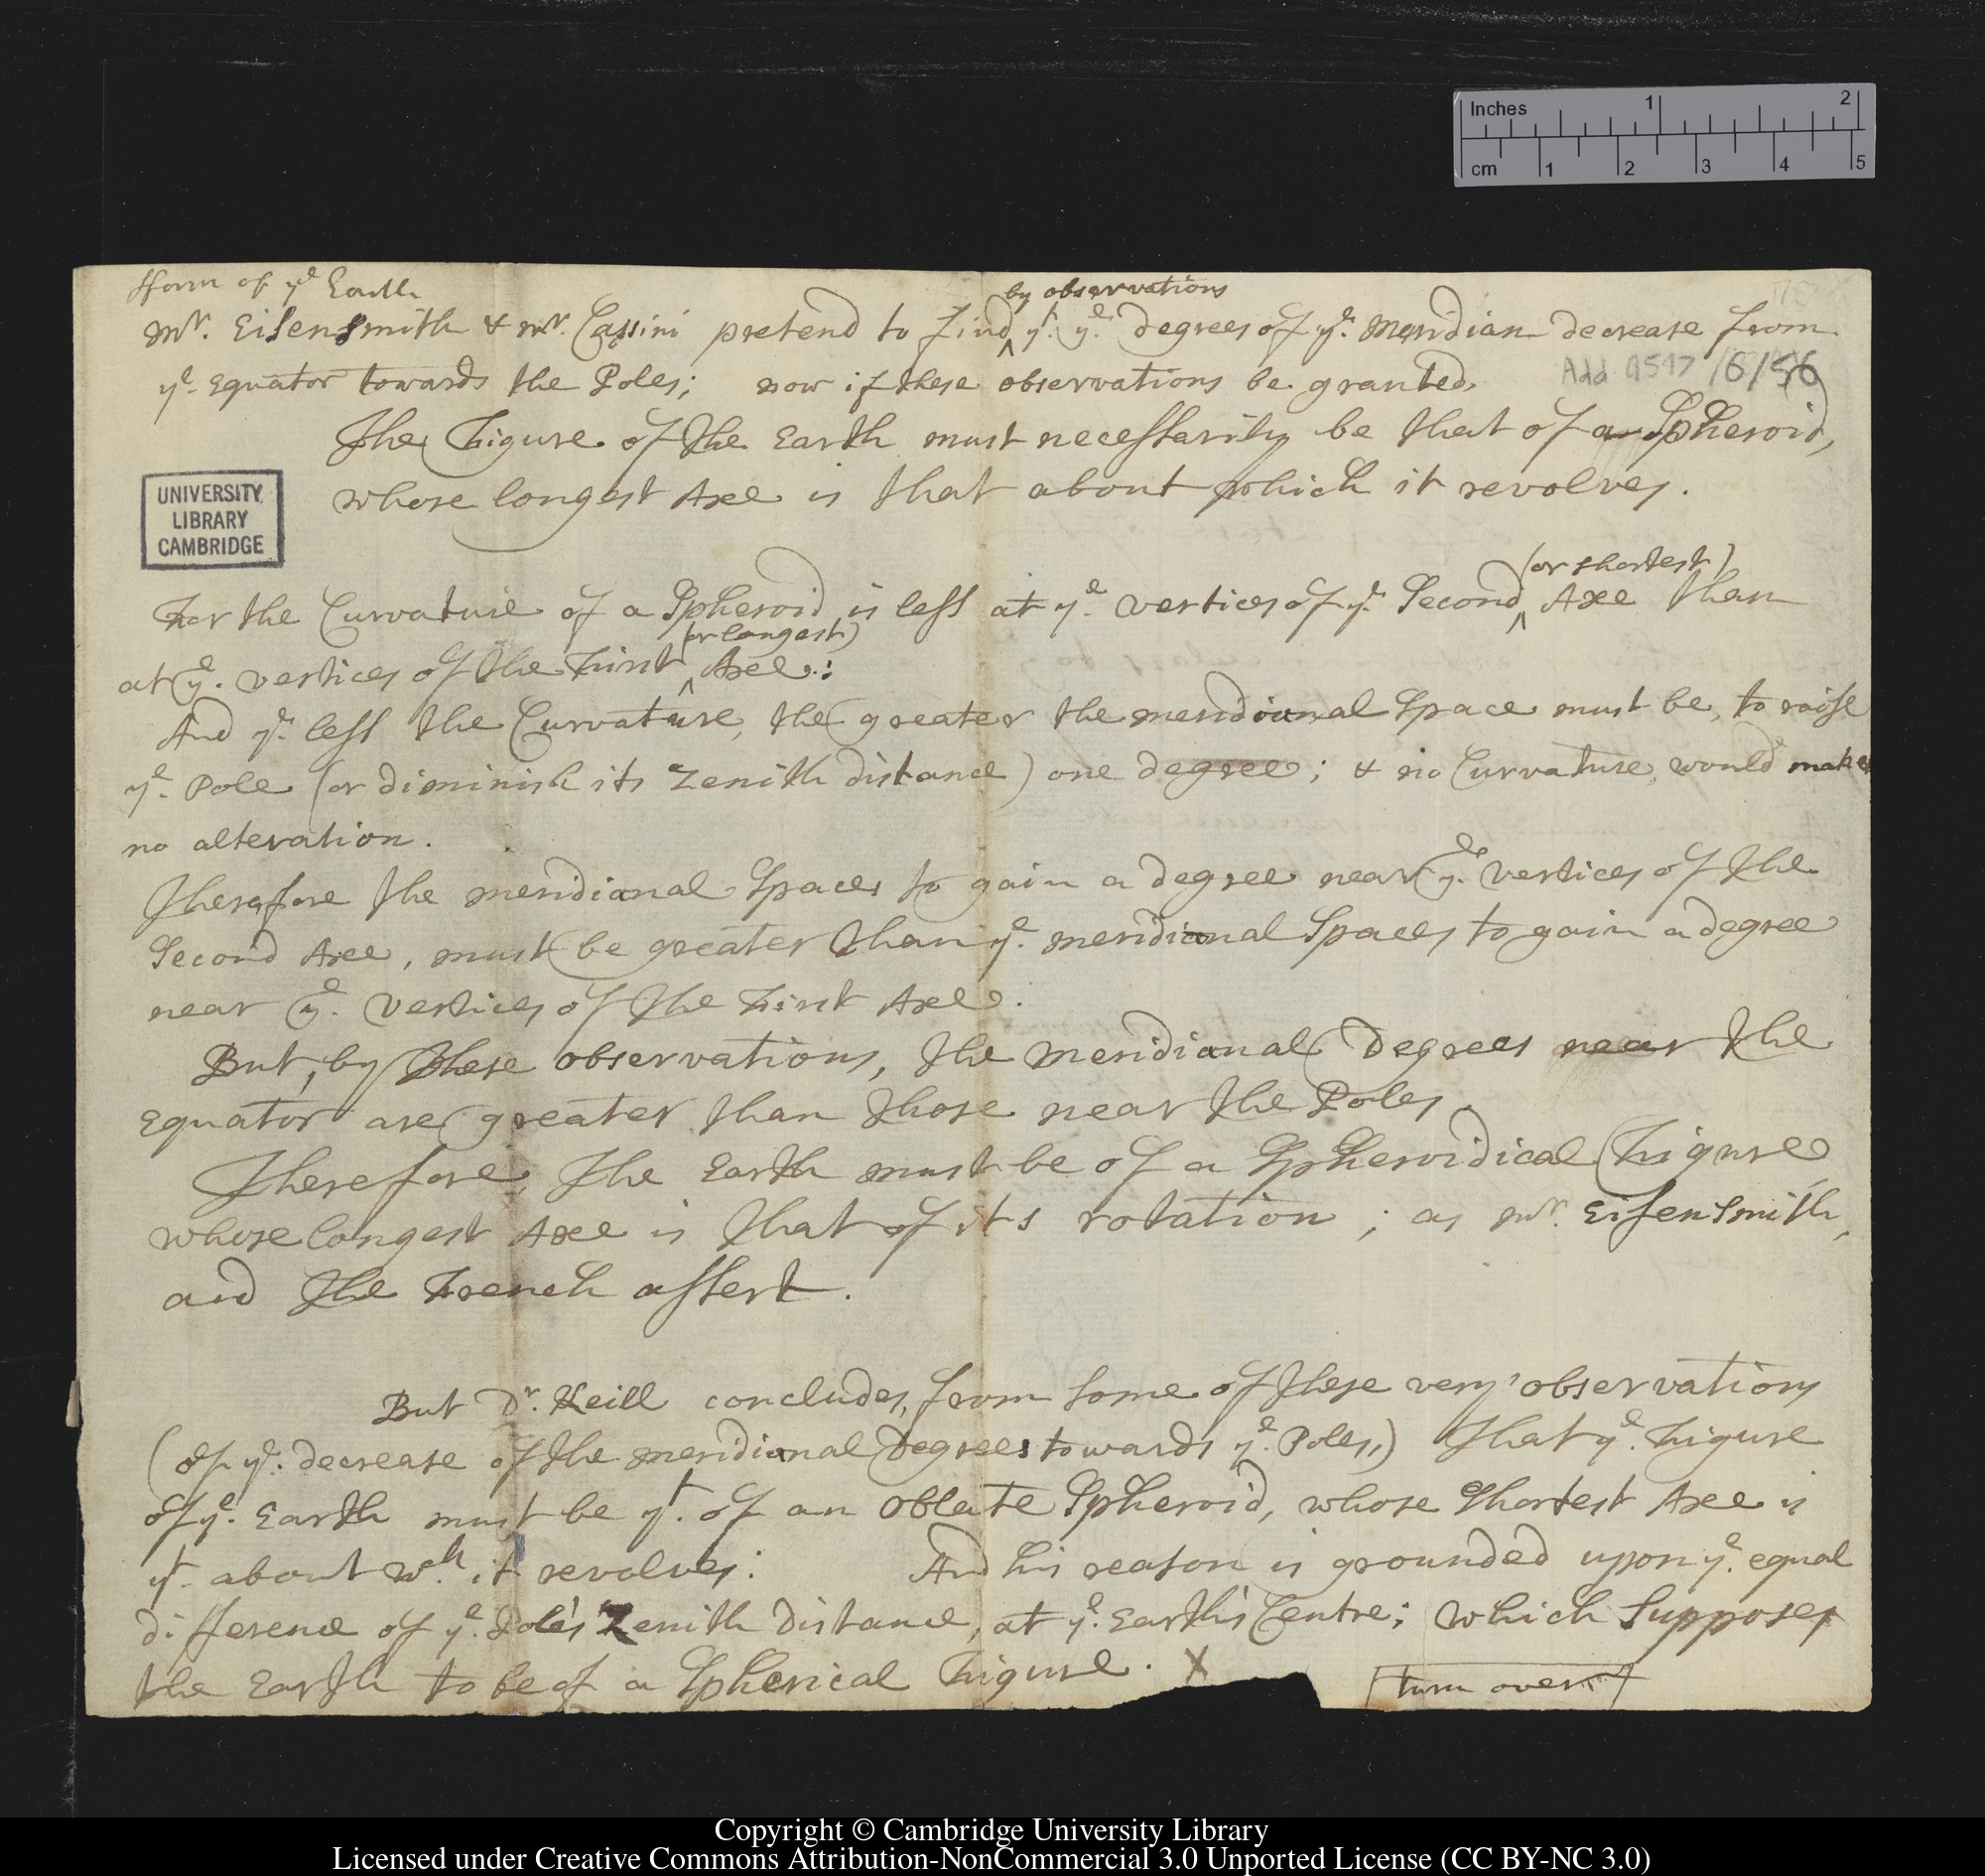 Inches 1 2
cm 1 2 3 4 5
fform of yᵉ Earth
by observations
Mʳ. Eisensmith & mʳ. Cassini pretend to find ‸ yᵗ. yᵉ. degrees of yᵉ. Meridian decrease from
yᵉ. Equator towards the Poles; now if these observations be granted,
Add 9597/8/56
The Figure of the Earth must necessarily be that of a Spheroid,
whose longest Axe is that about which it revolves.
UNIVERSITY
LIBRARY
CAMBRIDGE
(or shortest)
For the Curvature of a Spheroid is less at yᵉ. vertices of yᵉ. Second ‸ Axe than
(or longest)
at yᵉ. vertices of the First ‸ Axe:
And yᵉ. less the Curvature, the greater the meridional Space must be, to raise
yᵉ. Pole (or diminish its Zenith distance) one degree; & no Curvature, would make
no alteration.
Therefore the meridional Spaces to gain a degree near yᵉ. vertices of the
Second Axe, must be greater than yᵉ. meridional Spaces to gain a degree
near yᵉ. vertices of the First Axe.
But, by these observations, the Meridional Degrees near the
Equator are greater than those near the Poles.
Therefore, the Earth must be of a Spheroidical Figure,
whose longest Axe is that of its rotation; as mʳ. Eisensmith,
and the French assert.
But Dʳ. Keill concludes, from some of these very observations
(of yᵉ. decrease of the meridional Degrees towards yᵉ. Poles,) that yᵉ. Figure
of yᵉ. Earth must be yᵗ. of an Oblate Spheroid, whose Shortest Axe is
yᵗ. about wᶜʰ. it revolves: And his reason is grounded upon yᵉ. equal
difference of yᵉ. Pole's Zenith Distance, at yᵉ. Earth's Centre; which Supposes
the Earth to be of a Spherical Figure. X
turn over
Copyright © Cambridge University Library
Licensed under Creative Commons Attribution-NonCommercial 3.0 Unported License (CC BY-NC 3.0)